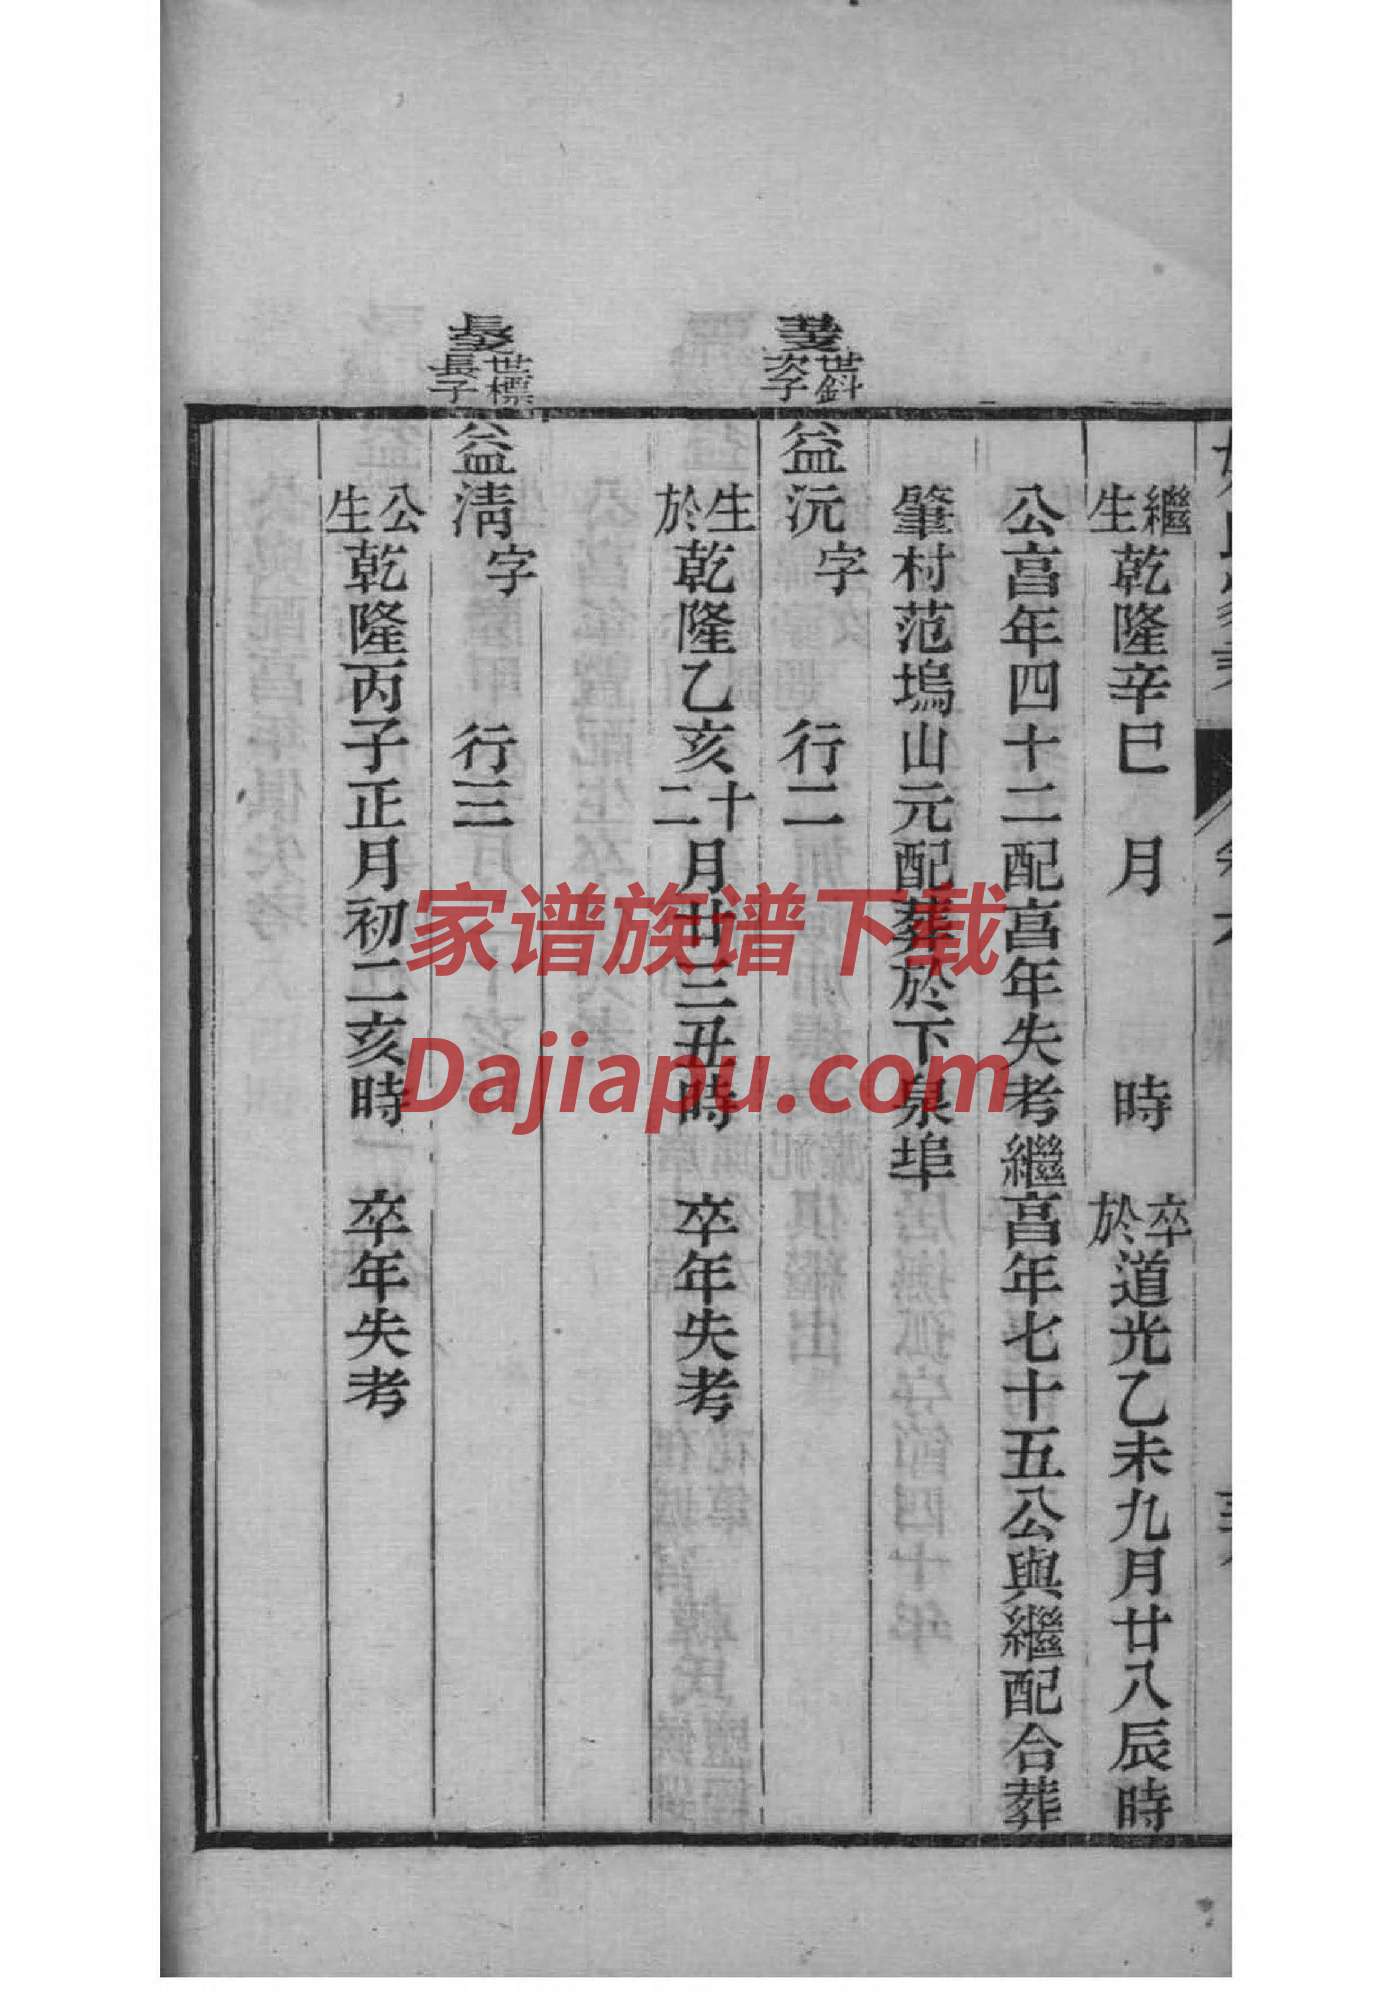 繼生乾隆辛巳　月　　時　卒於道光乙未九月廿八辰時
公亯年四十二配亯年失考繼亯年七十五公與繼配合葬
肇村范塢山元配葬於下泉埠
世斜次子
益沅字　行二
生於乾隆乙亥十二月廿三丑時　卒年失考
世標長子
益淸字　行三
公生乾隆丙子正月初二亥時　卒年失考
家谱族谱下载
Dajiapu.com